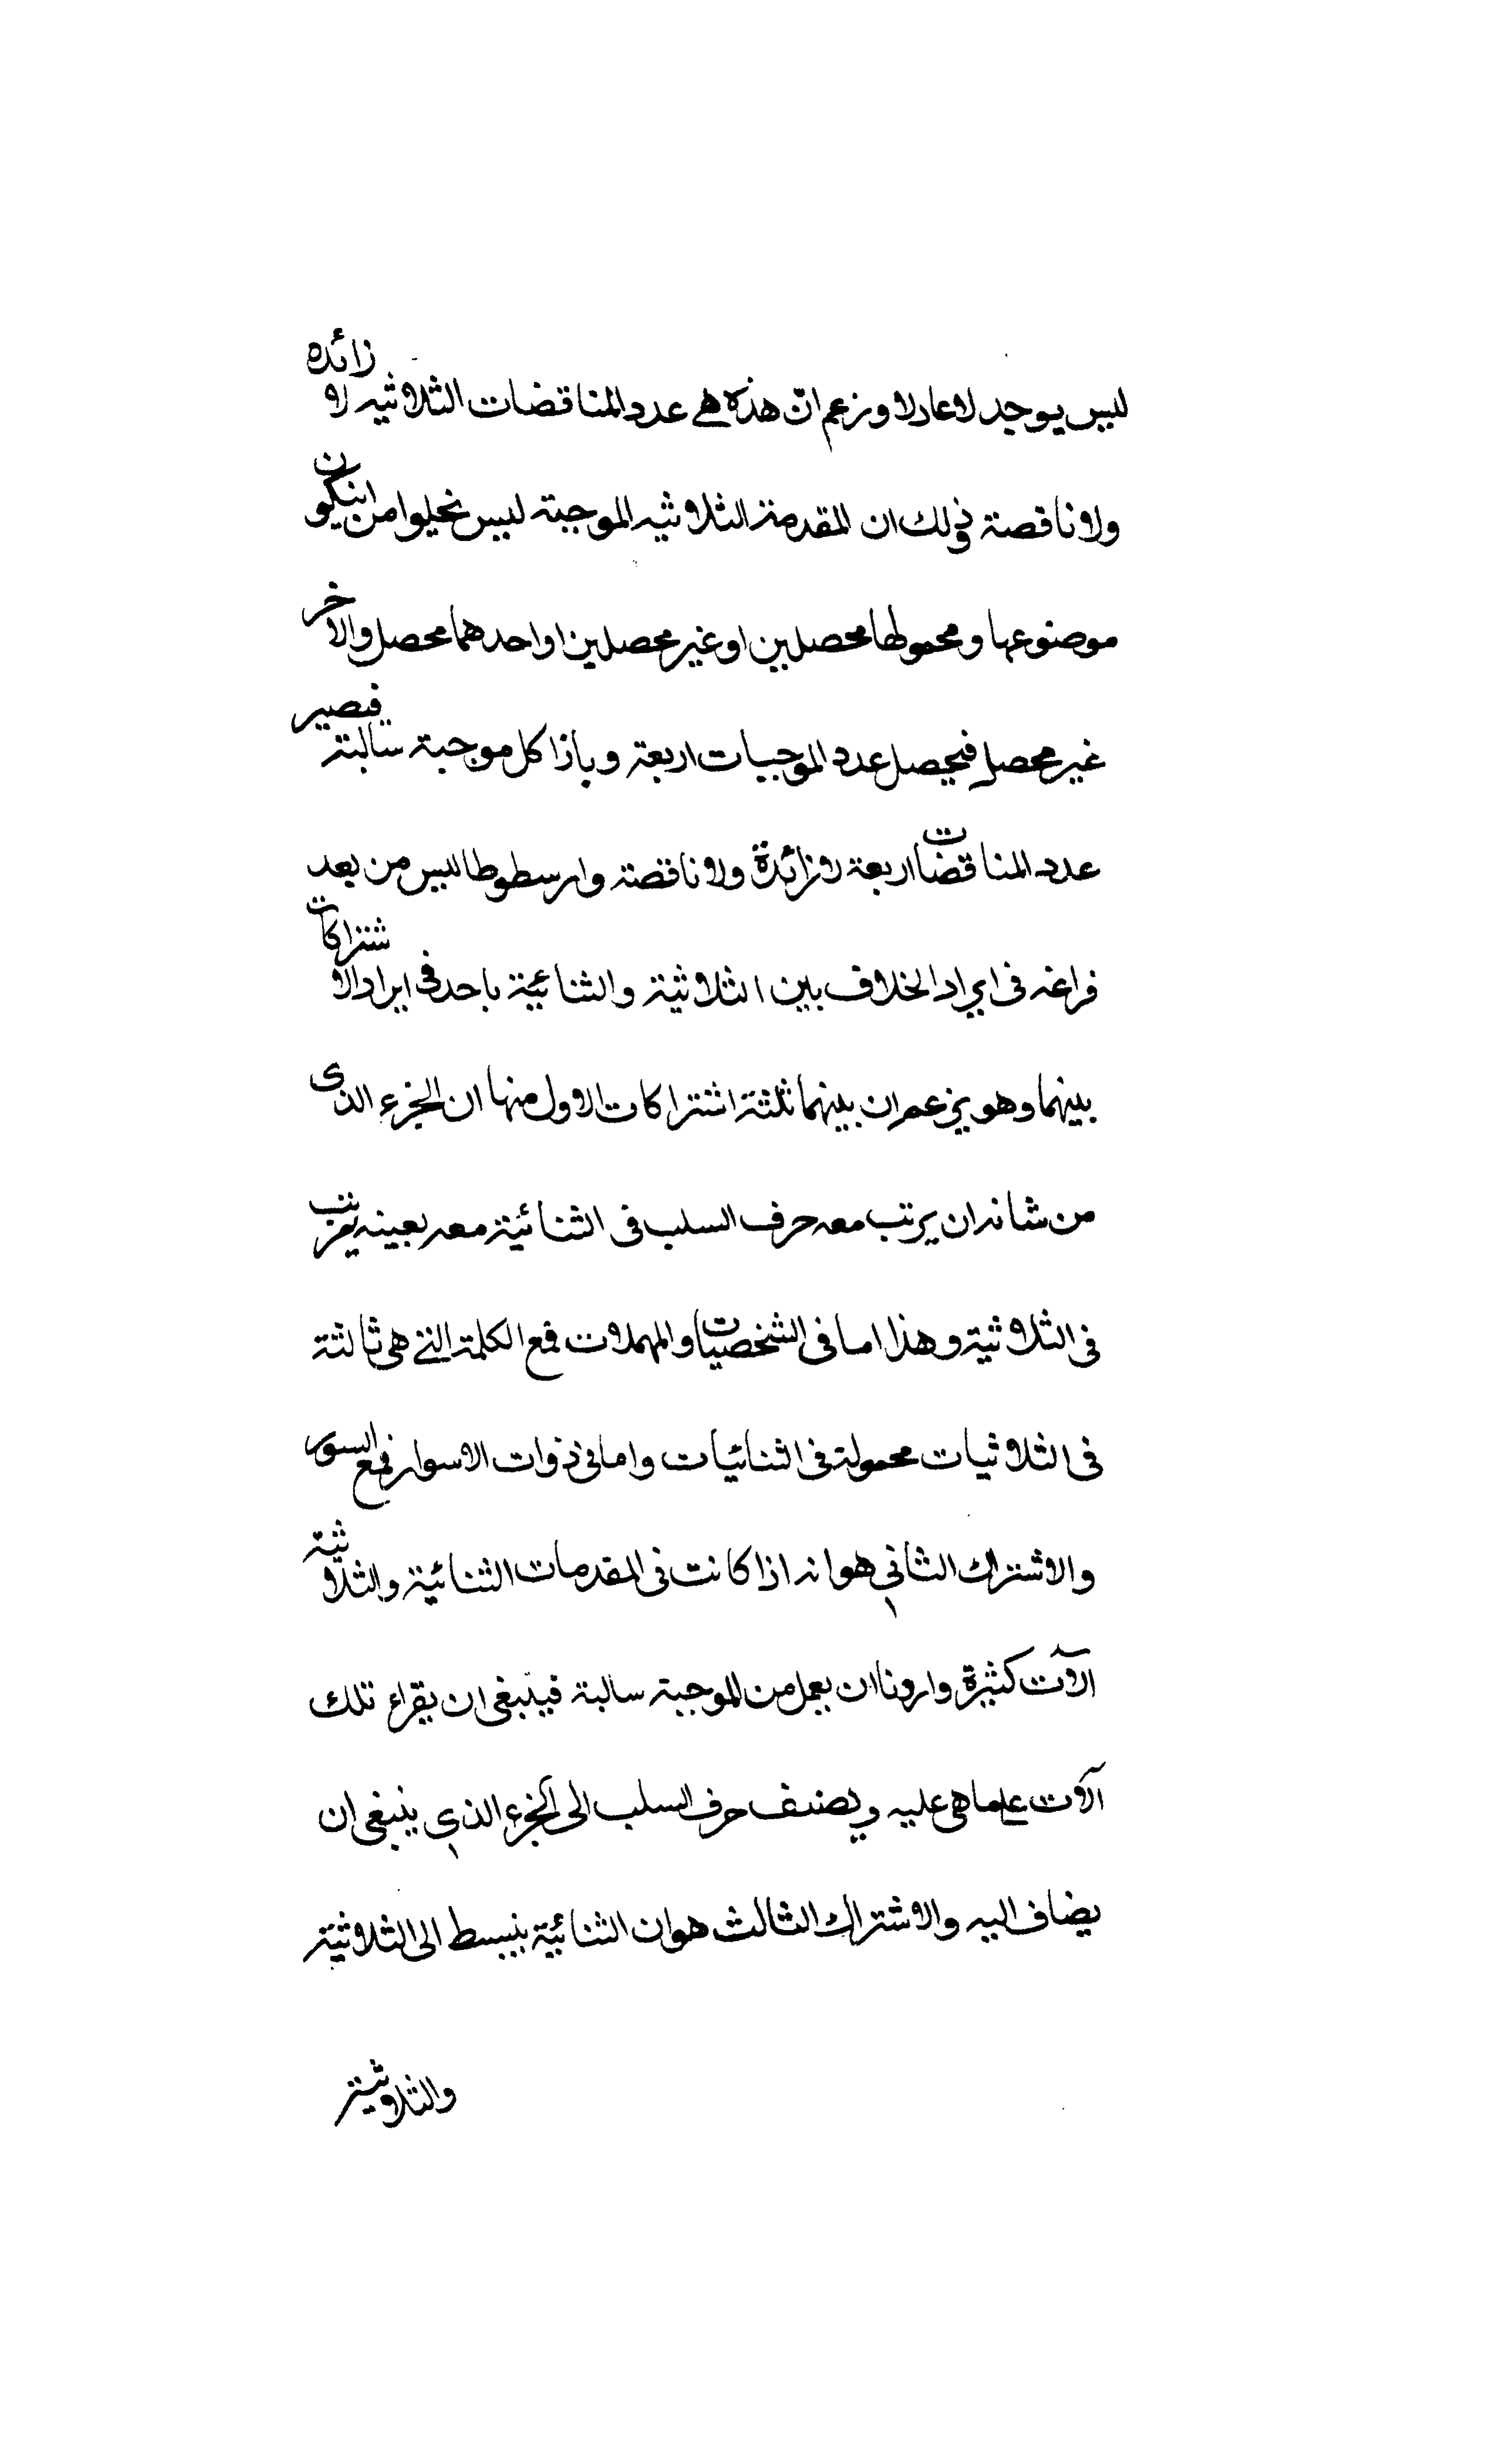 ليس يوجد لا عادلا وزعم انّ هذه هى عدد المناقضات الثلاثيه لا زائده
ولا ناقصة وذلك ان المقدمة الثلاثيه الموجبة ليس تخلوا من ان يكون
موضوعها ومحمولها محصلين او غير محصلين او احدهما محصل والاخر
غير محصل فيحصل عدد الموجبات اربعة وبازا كل موجبة سالبة فيصير
عدد المناقضات اربعة لا زائدة ولا ناقصة وارسطوطاليس من بعد
فراغه فى ايراد الخلاف بين الثلاثية والثنائية ياخذ فى ايراد الاشتراكات
بينهما وهو يزعم ان بينهما ثلثة اشتراكات الاول منها ان الجزء الذى
من شانه ان يرتب معه حرف السلب فى الثنائية معه بعينه يرتب
فى الثلاثية وهذا اما فى الشخصيات والمهملات فمع الكلمة التى هى ثالثة
فى الثلاثيات محمولة فى الثنائيات واما فى ذوات الاسوار فمع السور
والاشتراك الثانى هو انه اذا كانت فى المقدمات الثنائية والثلاثية
آلات كثيرة واردنا ان يعمل من الموجبة سالبة فينبغى ان يقراء تلك
آلات على ما هى عليه ويضيف حرف السلب الى الجزء الذى ينبغى ان
يضاف اليه والاشتراك الثالث هو ان الثنائية ينبسط الى الثلاثية
والثلاثية